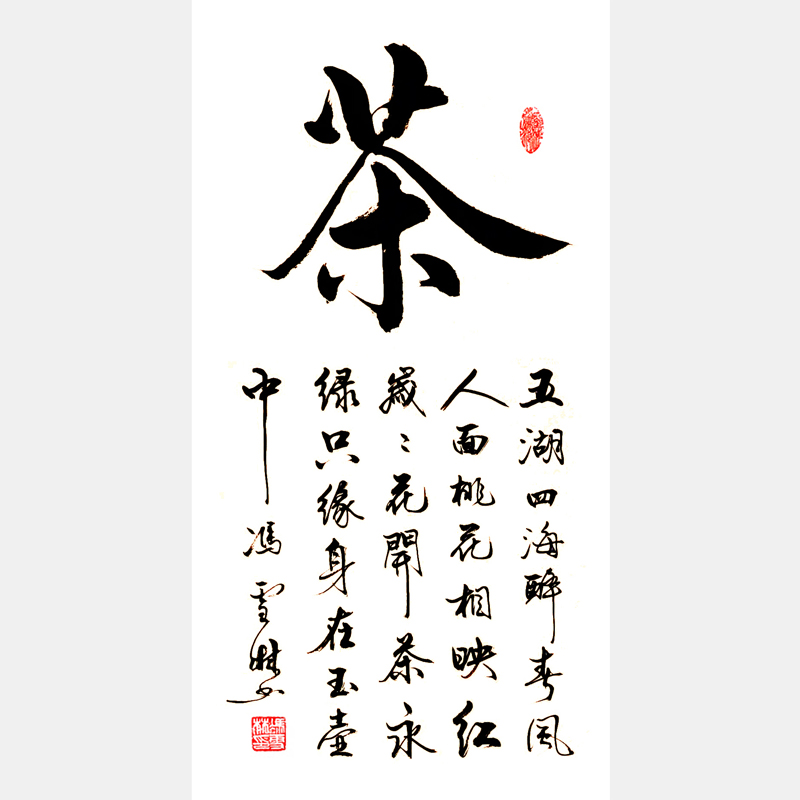 茶
五湖四海醉春风
人面桃花相映红
岁〻花開茶永
绿只缘身在玉壶
中 馮雪林书